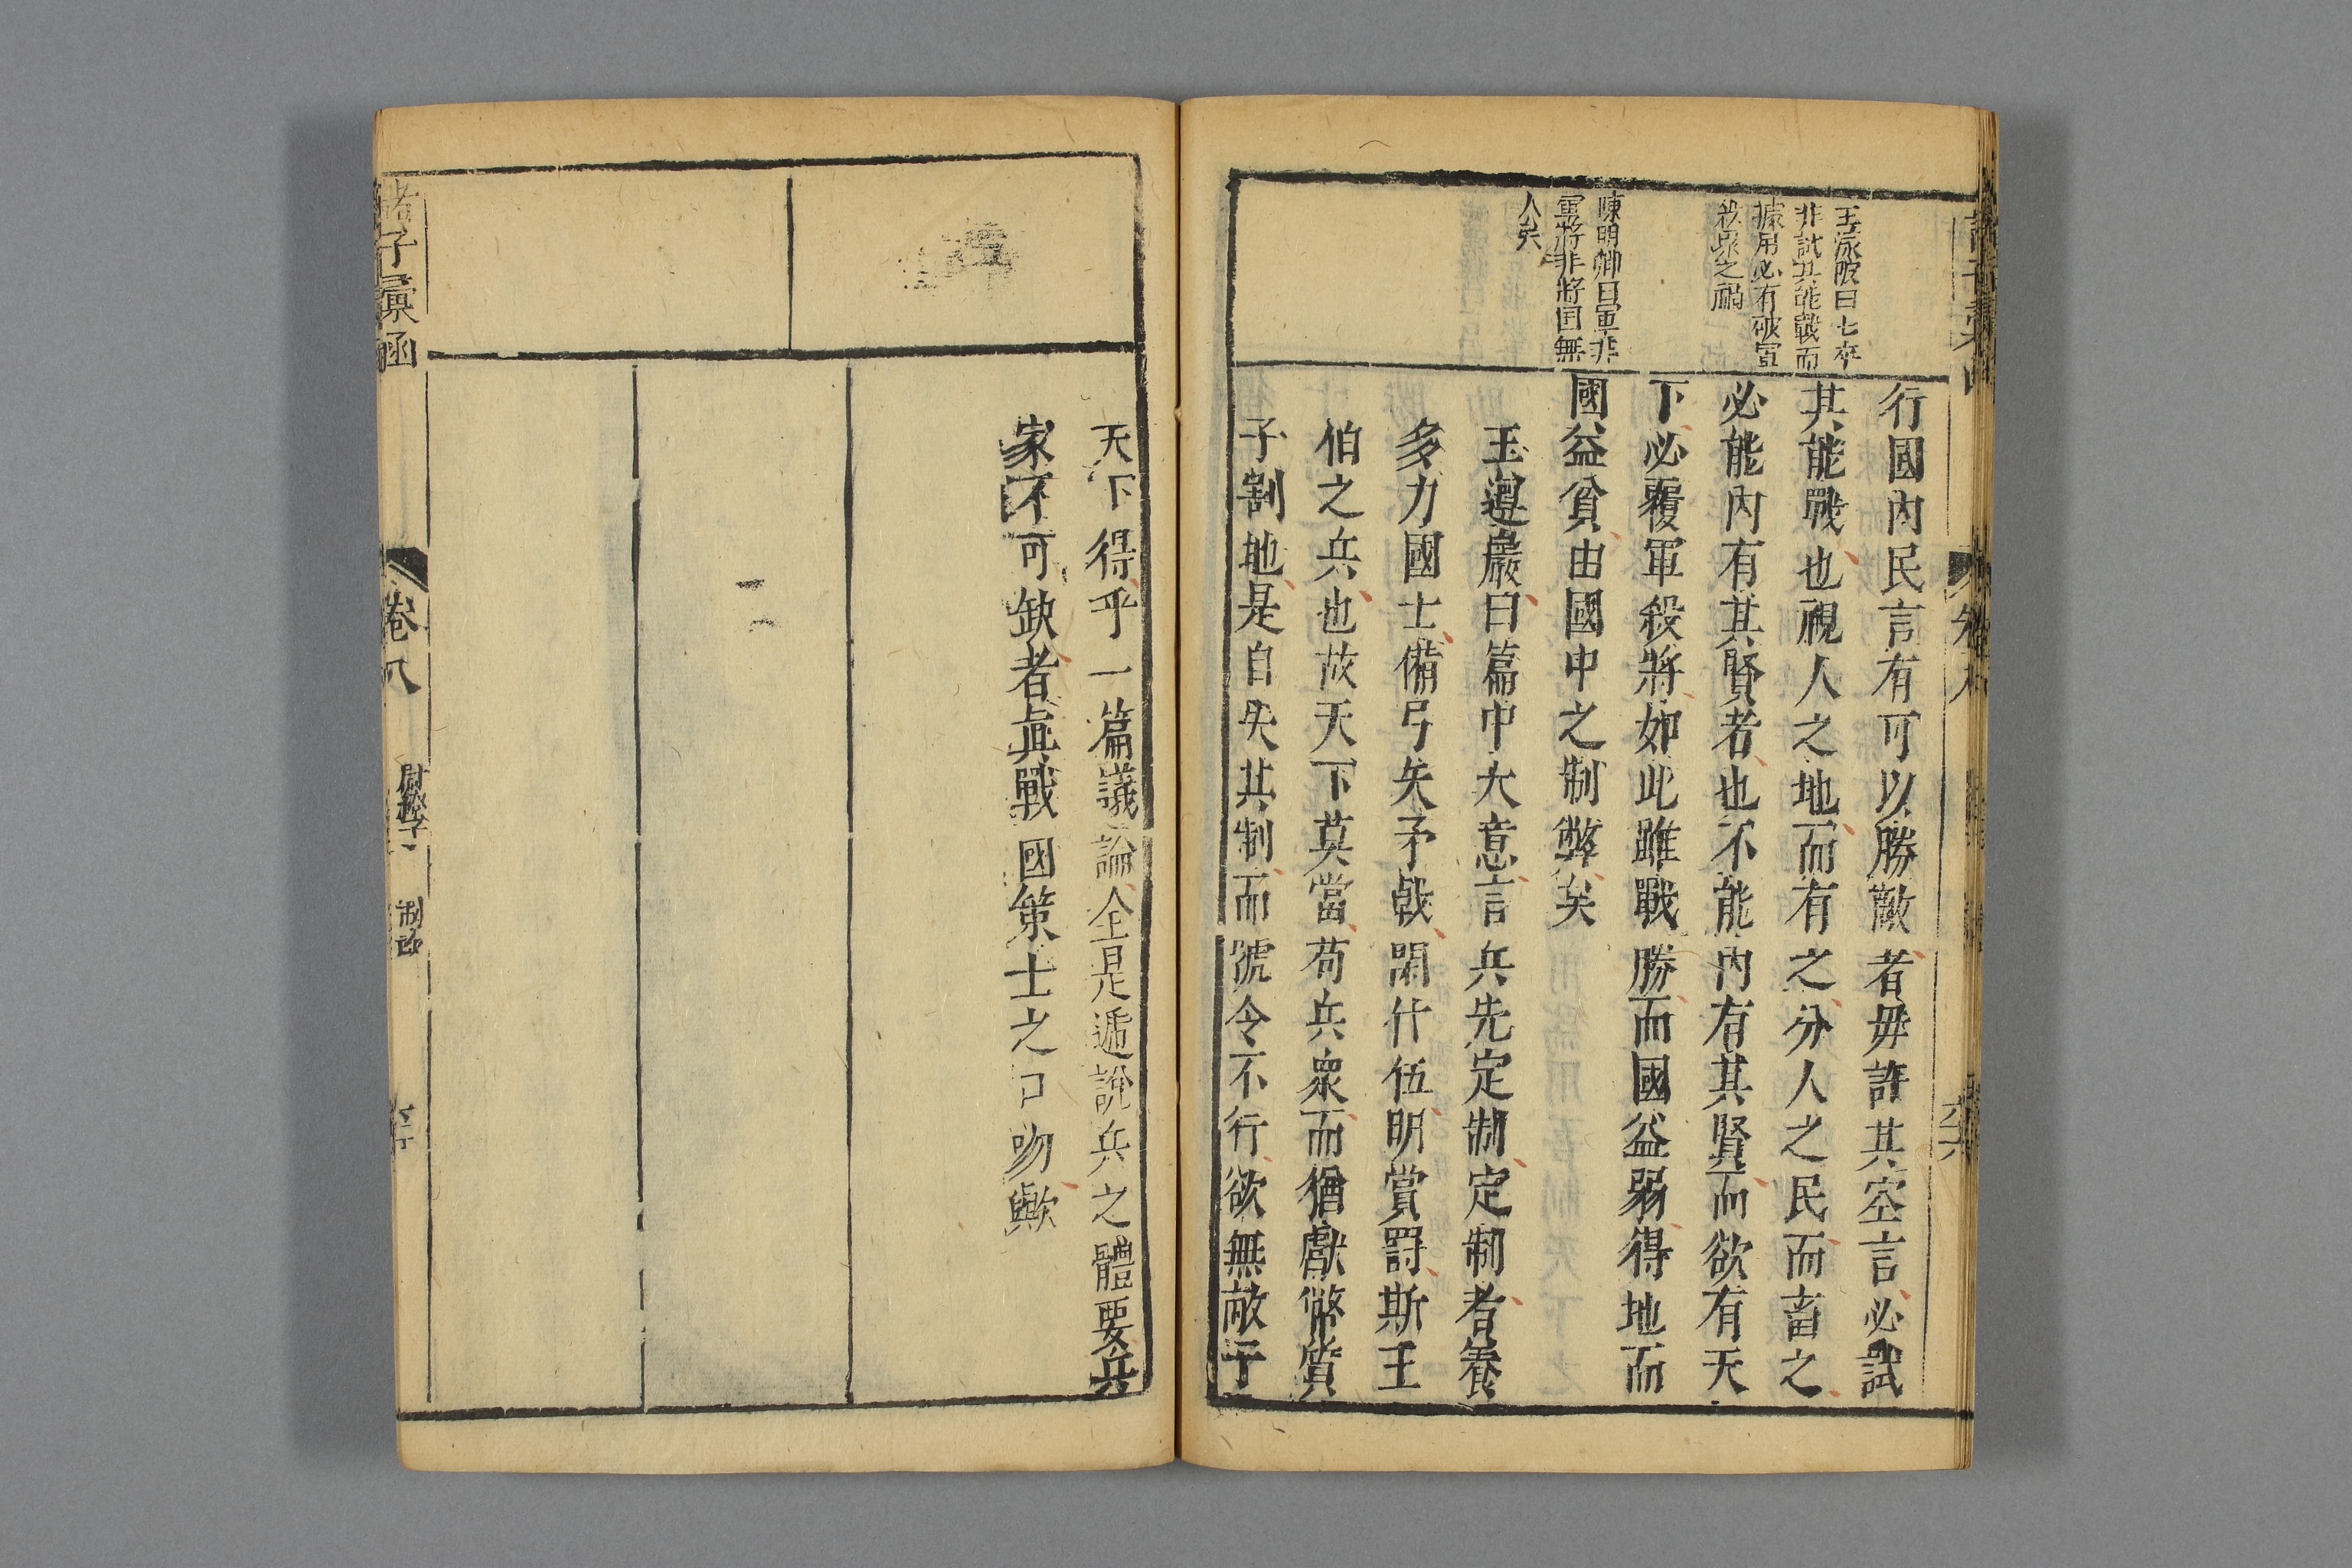 王泳陂曰士卒
非試其能戰而
據用必有破軍
殺眾之禍
陳明卿曰軍非
軍將非將国無
人矣
行國內民言有可以勝敵者毋許其空言必試
其能戰也視人之地而有之分人之民而畜之
必能內有其賢者也不能內有其賢而欲有天
下必覆軍殺將如此雖戰勝而國益弱得地而
國益貧由國中之制弊矣
王遵巖曰篇中大意言兵先定制定制者養
多力國士備弓矢矛戟閑什伍明賞罰斯王
伯之兵也故天下莫當苟兵衆而猶獻幣質
子割地是自失其制而號令不行欲無敵于
天下得乎一篇議論全是遁說兵之體要兵
家不可缺者眞戰國策士之口吻歟
諸子彙函
卷八
尉繚子
制